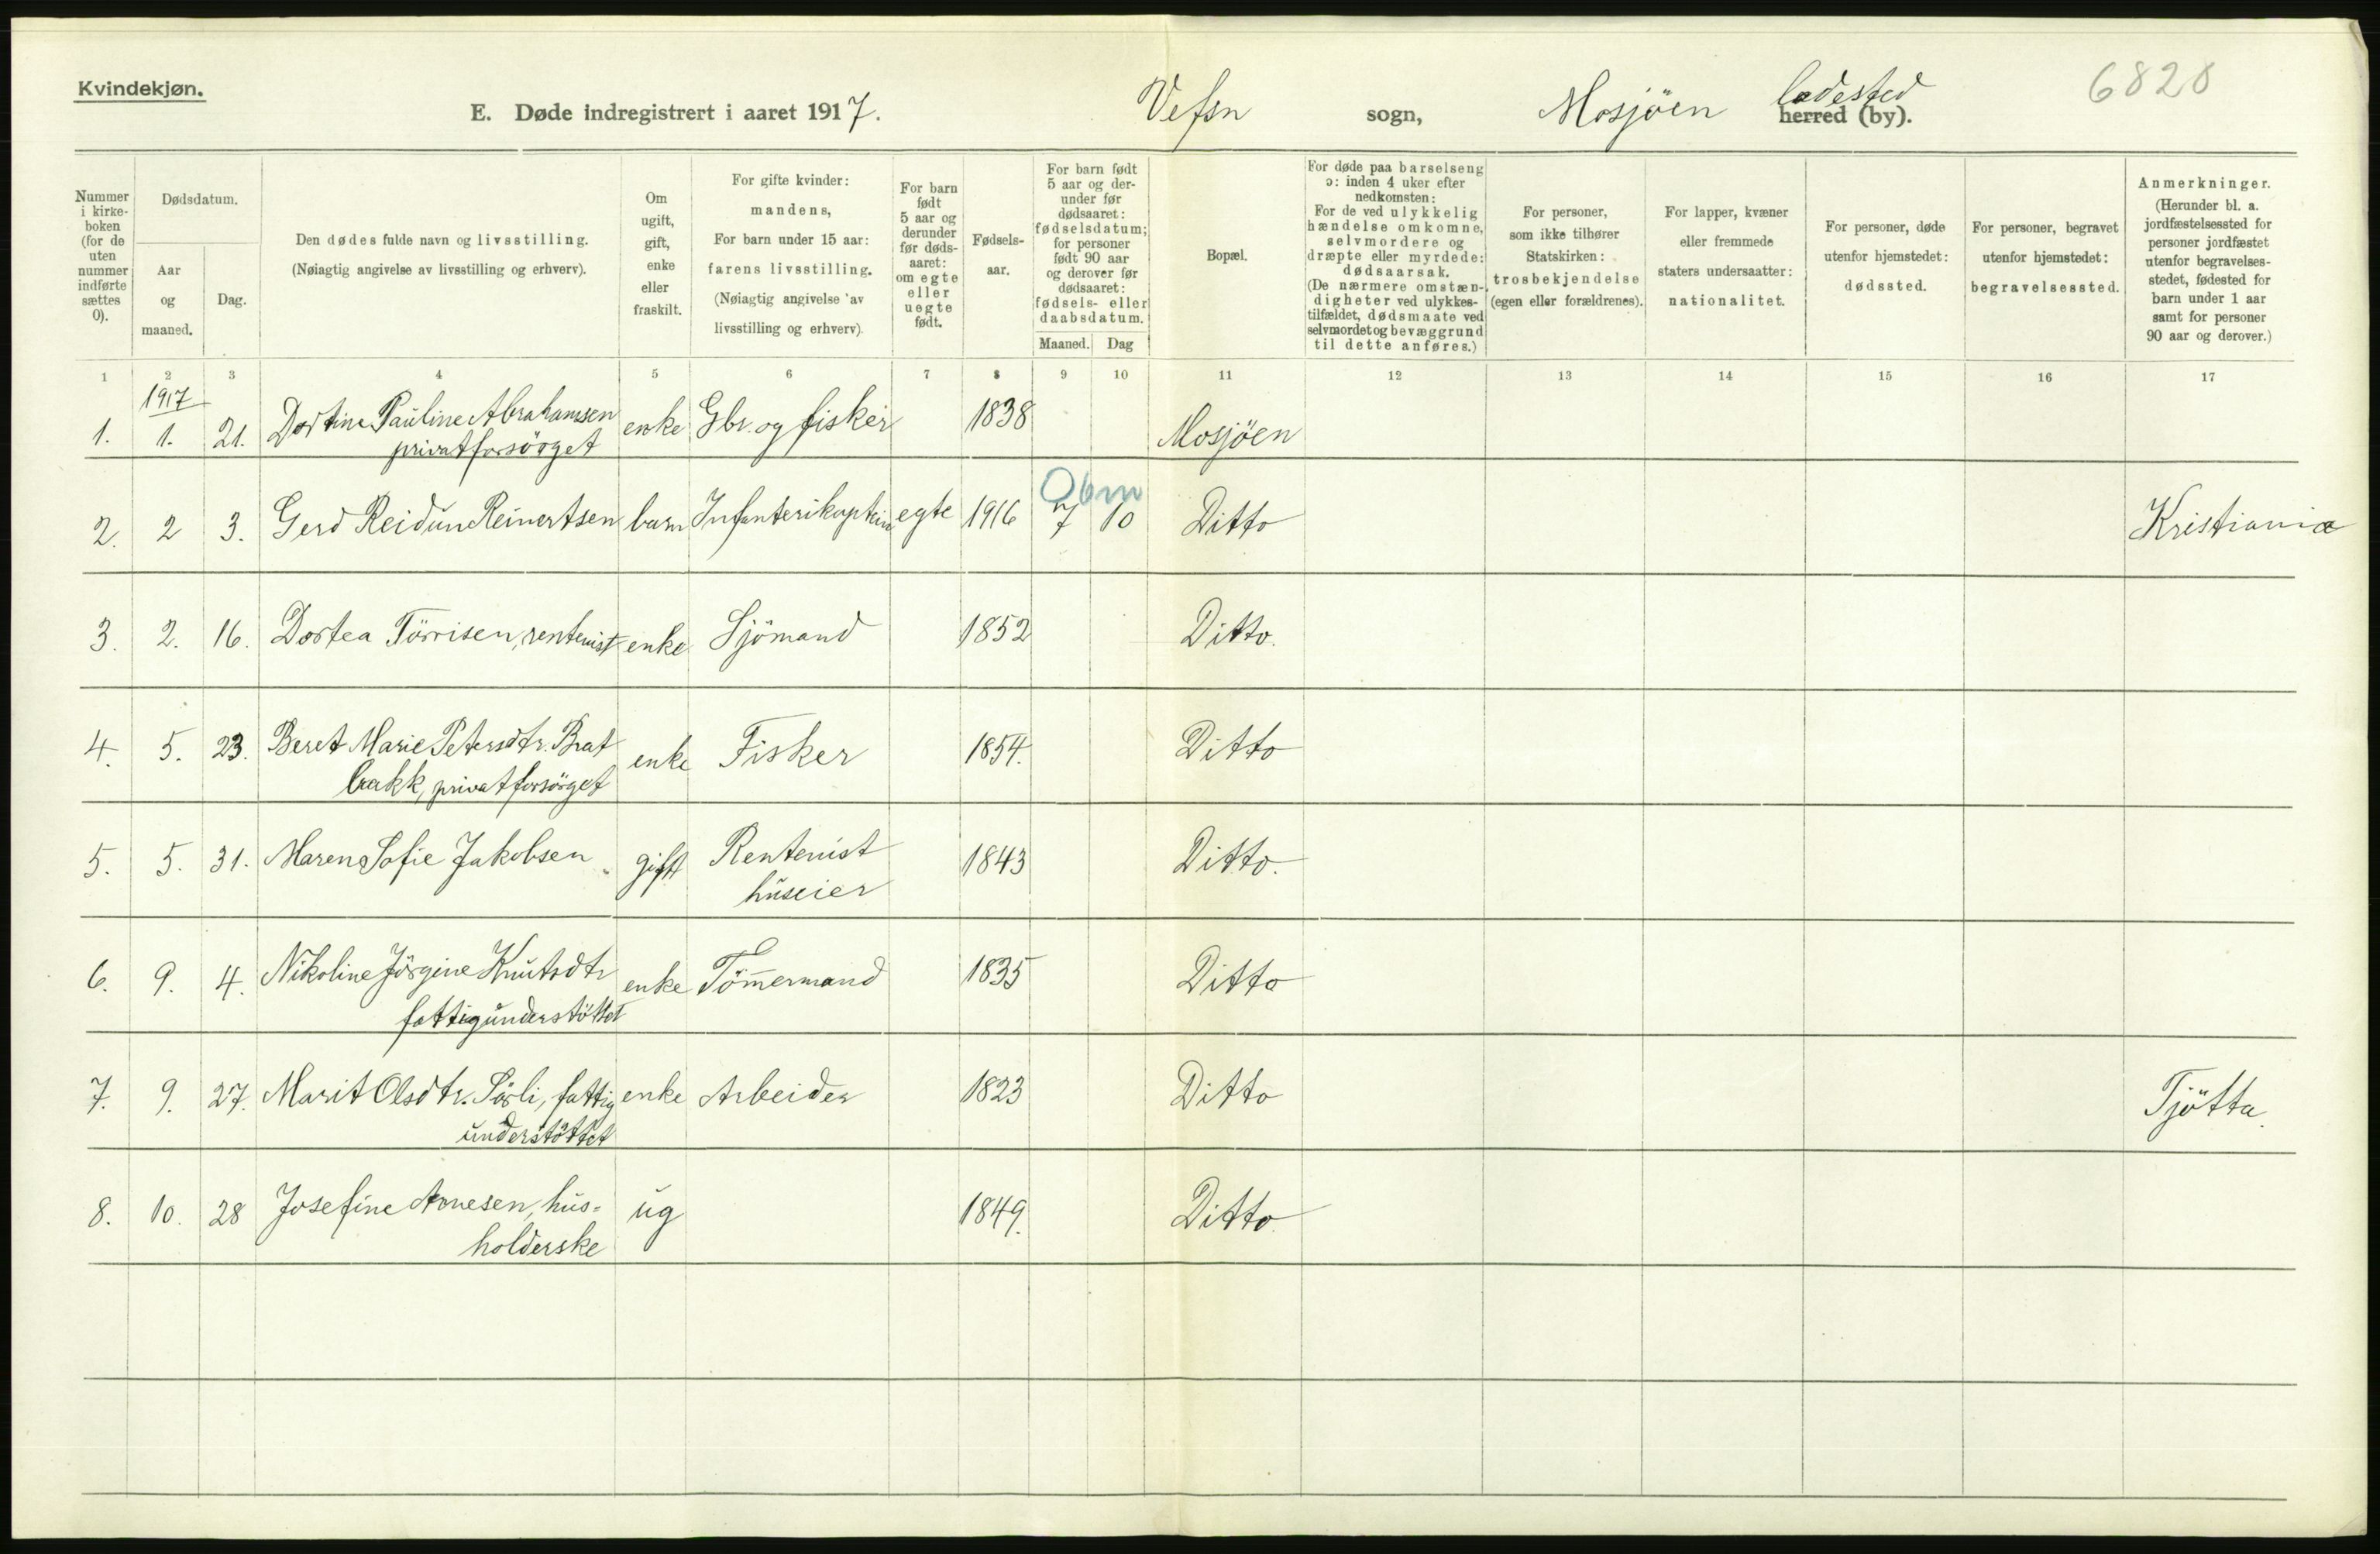 Kvindekjøn.
E. Døde indregistrert i aaret 1917.
Vefsn sogn, Mosjöen ladested herred (by).
6828
Nummer i kirke- boken (for de uten nummer indførte sættes 0).
Dødsdatum.
Aar og maaned.
Dag.
Den dødes fulde navn og livsstilling.
(Nøiagtig angivelse av livsstilling og erhverv).
Om ugift, gift, enke eller fraskilt.
For gifte kvinder: mandens,
For barn under 15 aar: farens livsstilling.
(Nøiagtig angivelse av livsstilling og erhverv).
For barn født 5 aar og derunder før døds- aaret: om egte eller uegte født.
Fødsels- aar.
For barn født 5 aar og der- under før dødsaaret: fødselsdatum; for personer født 90 aar og derover før dødsaaret: fødsels- eller daabsdatum.
Maaned. Dag
Bopæl.
For døde paa barselseng ɔ: inden 4 uker efter nedkomsten:
For de ved ulykkelig hændelse omkomne, selvmordere og dræpte eller myrdede: dødsaarsak.
(De nærmere omstæn- digheter ved ulykkes- tilfældet, dødsmaate ved selvmordet og bevæggrund til dette anføres.)
For personer, som ikke tilhører Statskirken: trosbekjendelse (egen eller forældrenes).
For lapper, kvæner eller fremmede staters undersaatter: nationalitet.
For personer, døde utenfor hjemstedet: dødssted.
For personer, begravet utenfor hjemstedet: begravelsessted.
Anmerkninger.
(Herunder bl. a. jordfæstelsessted for personer jordfæstet utenfor begravelses- stedet, fødested for barn under 1 aar samt for personer 90 aar og derover.)
1 2 3 4 5 6 7 8 9 10 11 12 13 14 15 16 17
1917
1. 1. 21. Dortine Pauline Abrahamsen enke Gbr. og fisker 1838 Mosjöen
privatforsörget
0 6 m
2. 2 3. Gerd Reidun Reinertsen barn Infanterikaptein egte 1916 7 10 Ditto Kristiania
3. 2. 16. Dortea Törrisen, rentenist enke Sjömand 1852 Ditto.
4. 5. 23. Beret Marie Petersdtr. Brat enke Fisker 1854. Ditto
bakk, privatforsörget
5. 5. 31. Maren Sofie Jakobsen gift Rentenist 1843 Ditto.
huseier
6. 9. 4. Nikoline Jörgine Knutsdtr enke Töm̄ermand 1835 Ditto
fattigunderstöttet
7. 9. 27. Marit Olsdtr. Sörli, fattig enke Arbeider 1823 Ditto Tjötta.
understöttet
8. 10. 28 Josefine Arnesen, hus= ug 1849. Ditto
holderske